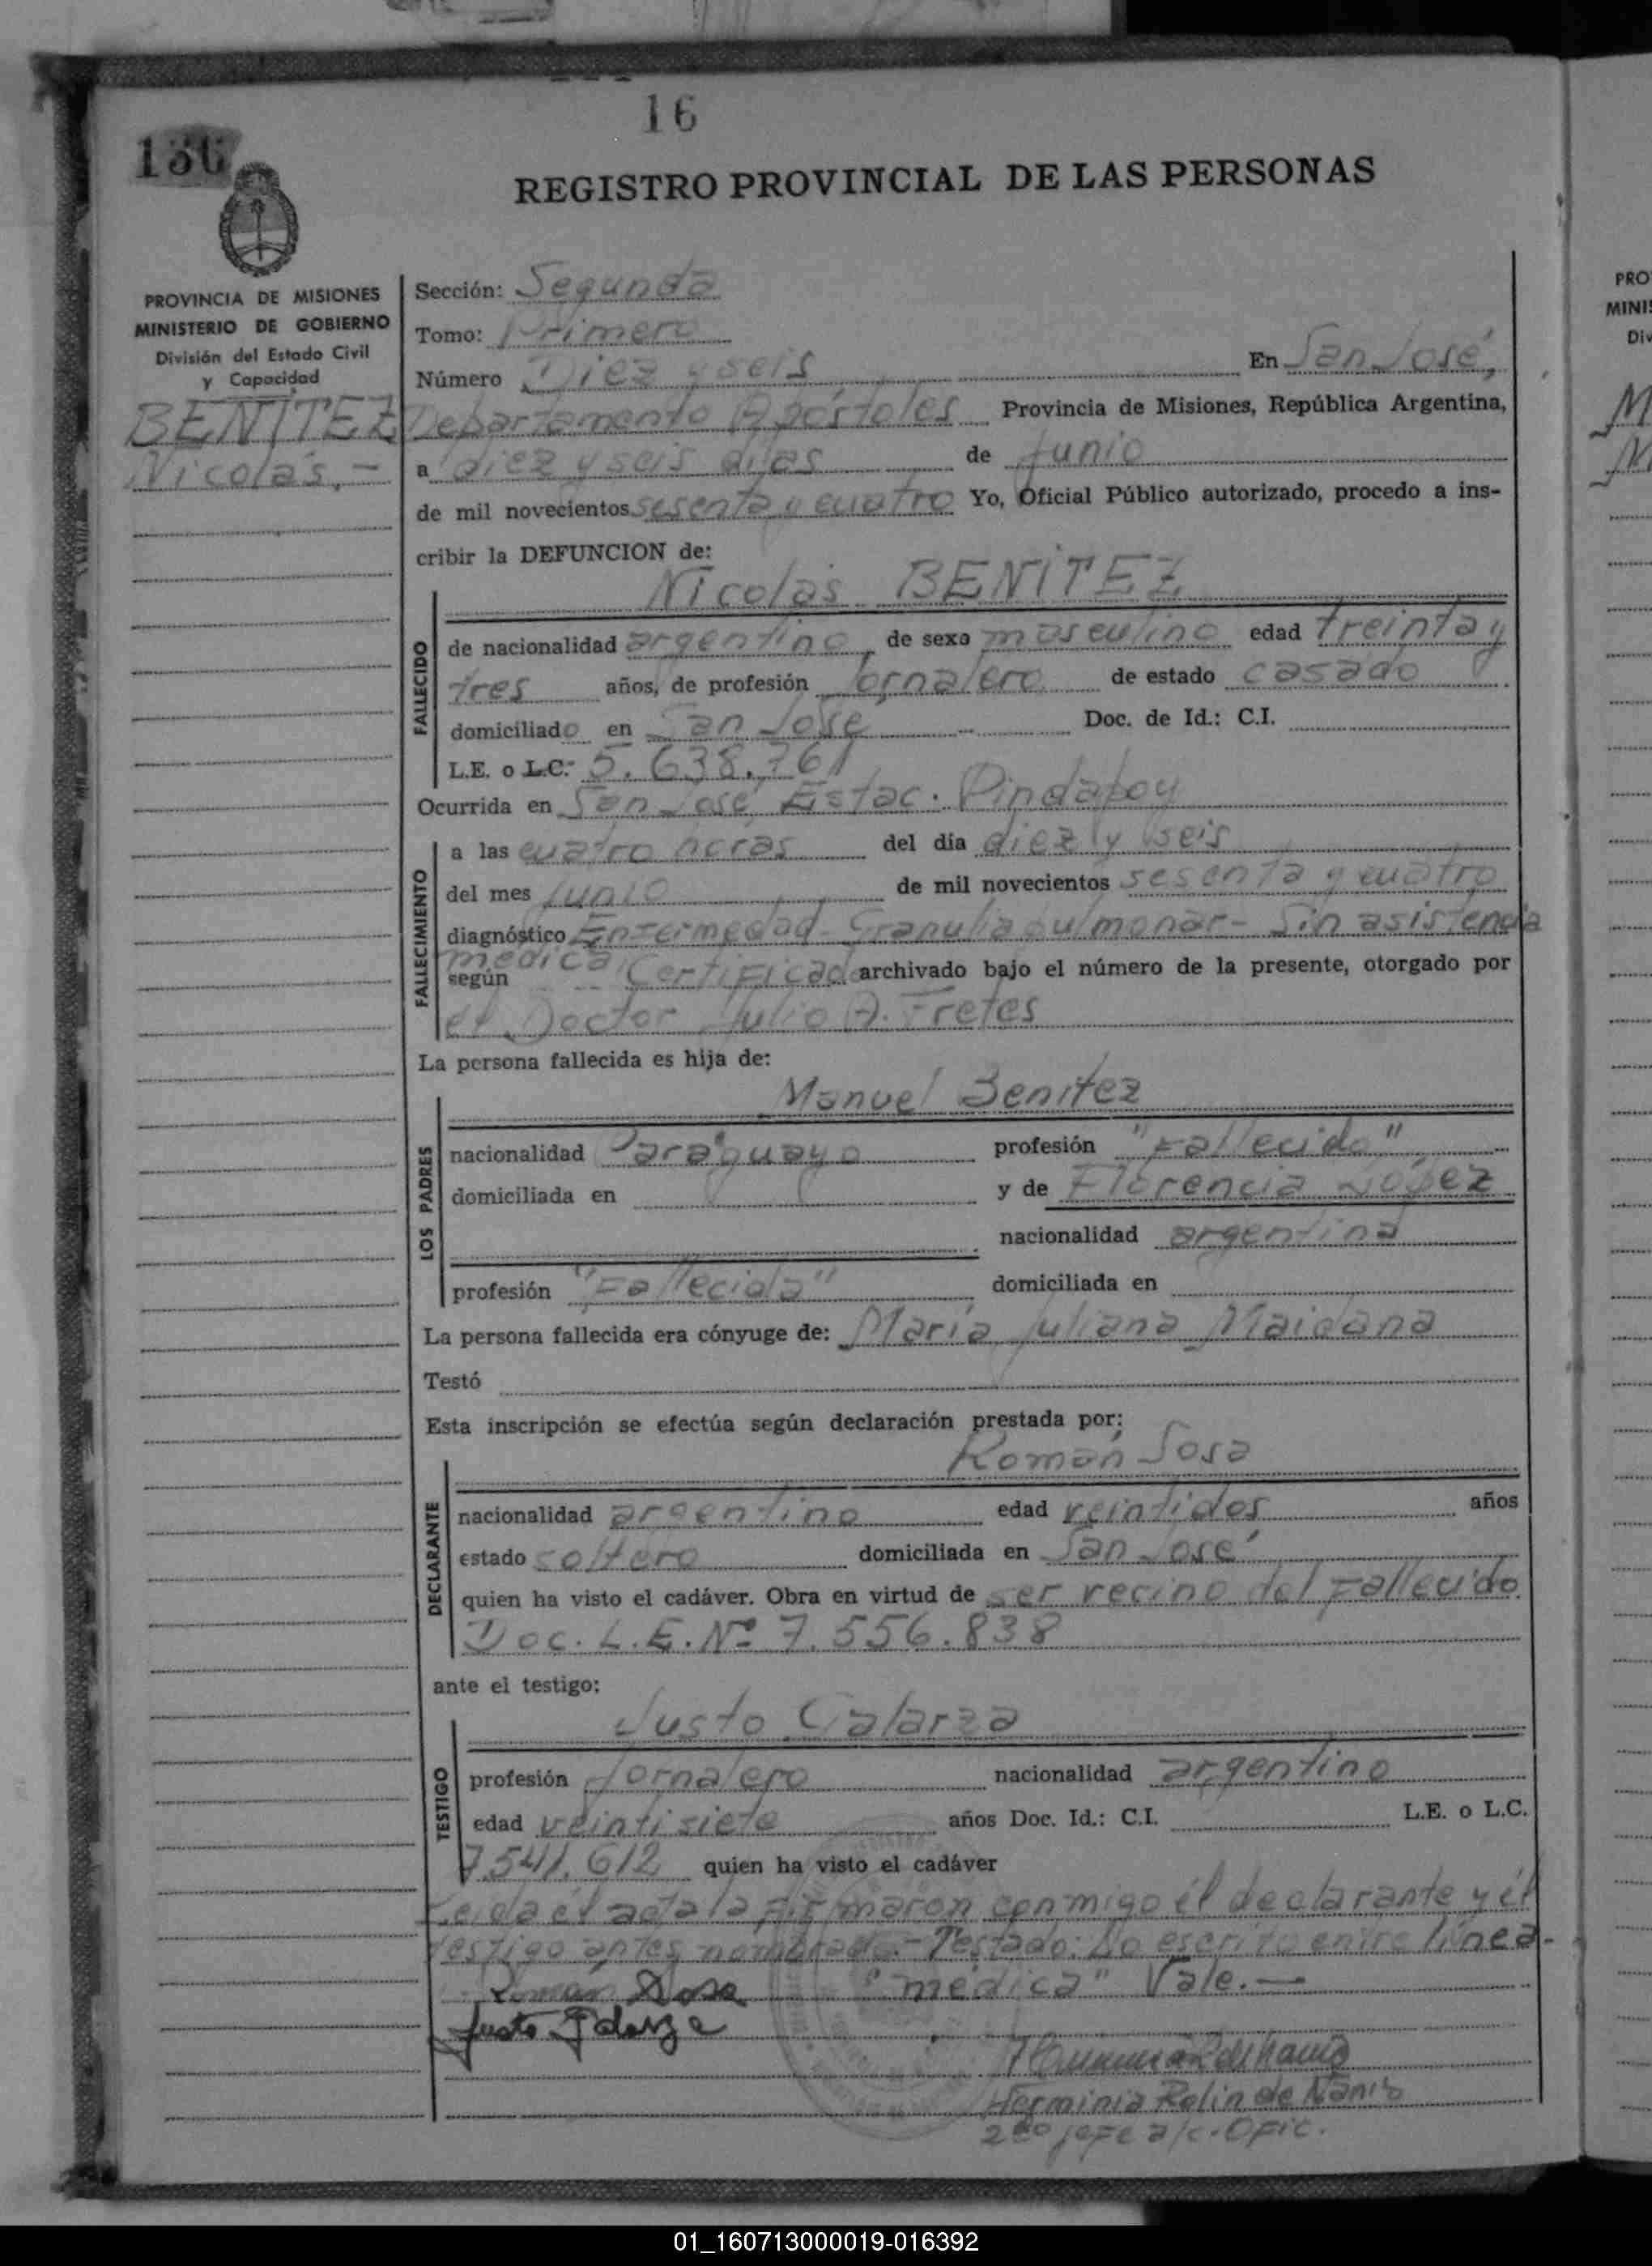 16
136
REGISTRO PROVINCIAL DE LAS PERSONAS
PROVINCIA DE MISIONES
MINISTERIO DE GOBIERNO
División del Estado Civil
y Capacidad
BENITEZ
Nicolás.-
Sección: Segunda
Tomo: Primero
Número Diez y seis En San José,
Departamento Apóstoles Provincia de Misiones, República Argentina,
a diez y seis días de Junio
de mil novecientos sesenta y cuatro Yo, Oficial Público autorizado, procedo a ins-
cribir la DEFUNCION de:
Nicolás BENITEZ
FALLECIDO
de nacionalidad argentino, de sexo masculino edad treinta y
tres años, de profesión Jornalero de estado casado
domiciliado en San José Doc. de Id.: C.I.
L.E. o L.C.- 5.638.761
Ocurrida en San José Estac. Pindapoy
FALLECIMIENTO
a las cuatro horas del día diez y seis
del mes Junio de mil novecientos sesenta y cuatro
diagnóstico Enfermedad- Granulia pulmonar- Sin asistencia
médica
según Certificado archivado bajo el número de la presente, otorgado por
el Doctor Julio A. Fretes
La persona fallecida es hija de:
Manuel Benitez
LOS PADRES
nacionalidad Paraguayo profesión "Fallecido"
domiciliada en y de Florencia López
nacionalidad argentina
profesión "Fallecida" domiciliada en
La persona fallecida era cónyuge de: María Juliana Maidana
Testó
Esta inscripción se efectúa según declaración prestada por:
Román Sosa
DECLARANTE
nacionalidad argentino edad veintidos años
estado soltero domiciliada en San José
quien ha visto el cadáver. Obra en virtud de ser vecino del Fallecido.
Doc. L.E. Nº 7.556.838
ante el testigo:
Justo Galarza
TESTIGO
profesión Jornalero nacionalidad argentino
edad veintisiete años Doc. Id.: C.I. L.E. o L.C.
7.541.612 quien ha visto el cadáver
Leida él acta la Firmaron conmigo él declarante y él
testigo antes nombrado.- Testado: No escrito entre línea-
Román Sosa "médica" Vale.-
Justo Galarza
Herminia Rolin de
2do Jefe a/c. Ofic.
PRO
MINIS
Div
01_160713000019-016392